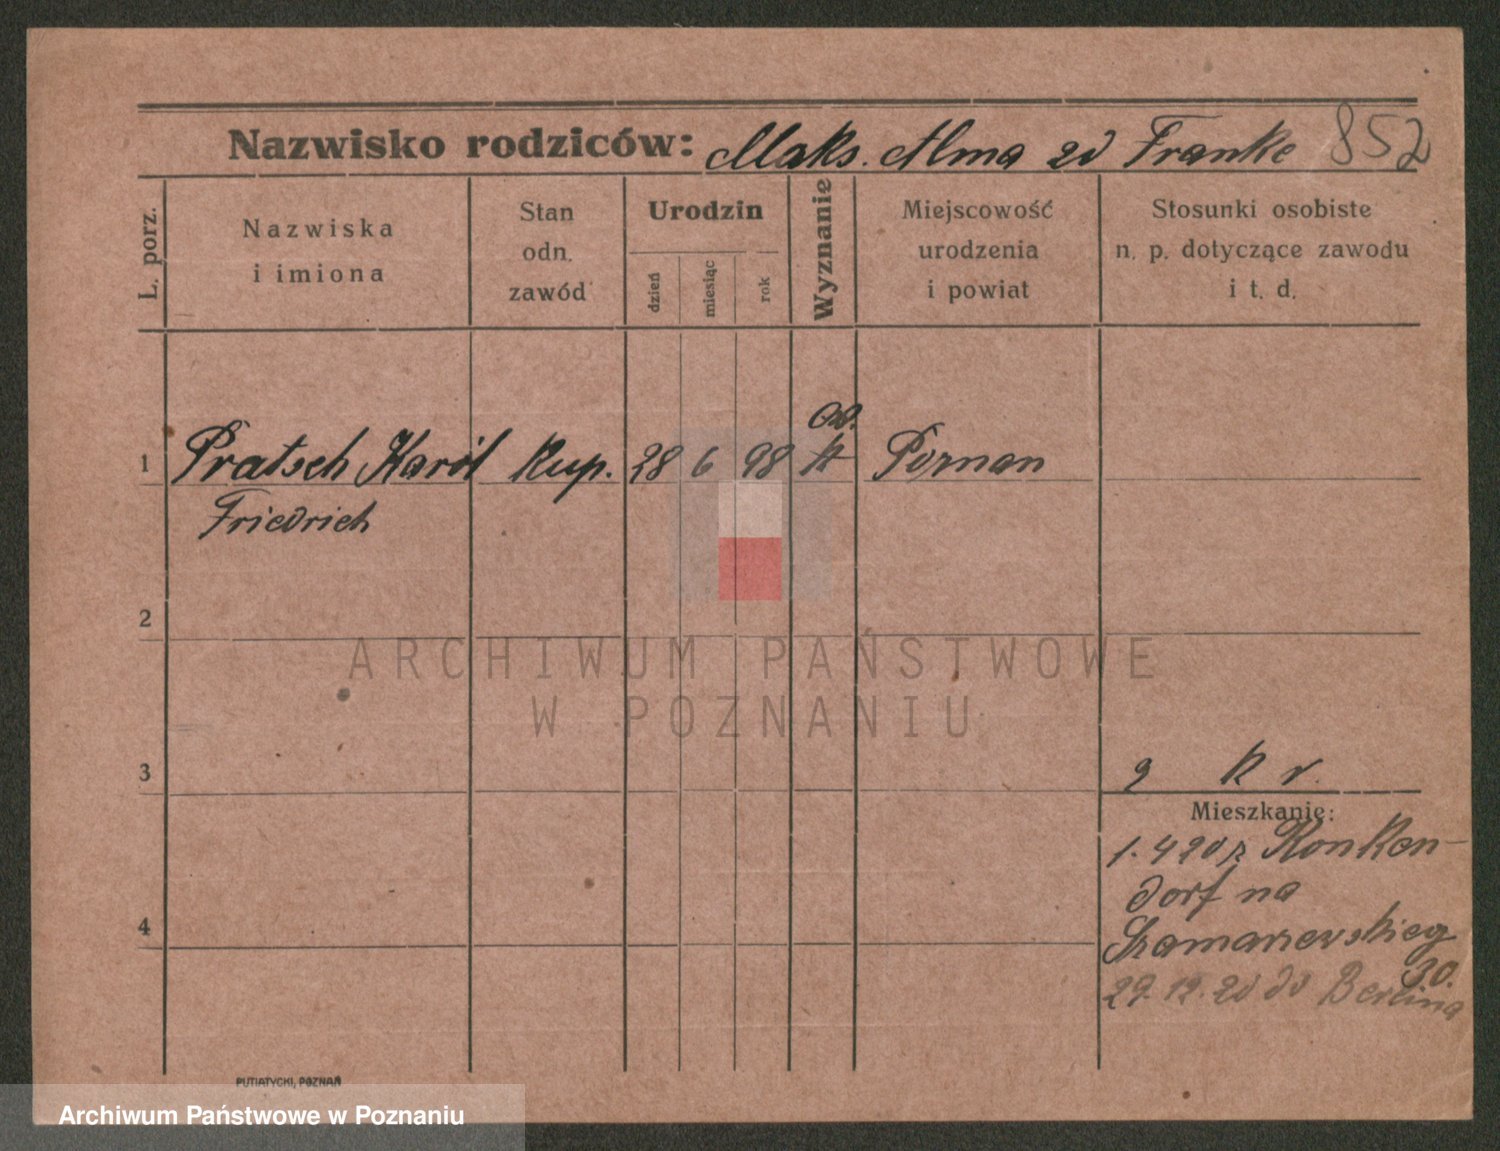 Nazwisko rodziców: Maks. Alma zd Franke 852
L. porz.
Nazwiska
i imiona
Stan
odn.
zawód
Urodzin
dzień
miesiąc
rok
Wyznanie
Miejscowość
urodzenia
i powiat
Stosunki osobiste
n. p. dotyczące zawodu
i t. d.
1 Pratsch Karól Kup. 28 6 98 Poznan
Friedrich
2
3
4
Mieszkanie:
1. 4 20 z Konken-
dorf na
Szamarzewskieg
30.
29. 12. 20 do Berlina
PUTIATYCKI, POZNAŃ
ARCHIWUM PAŃSTWOWE
W POZNANIU
Archiwum Państwowe w Poznaniu